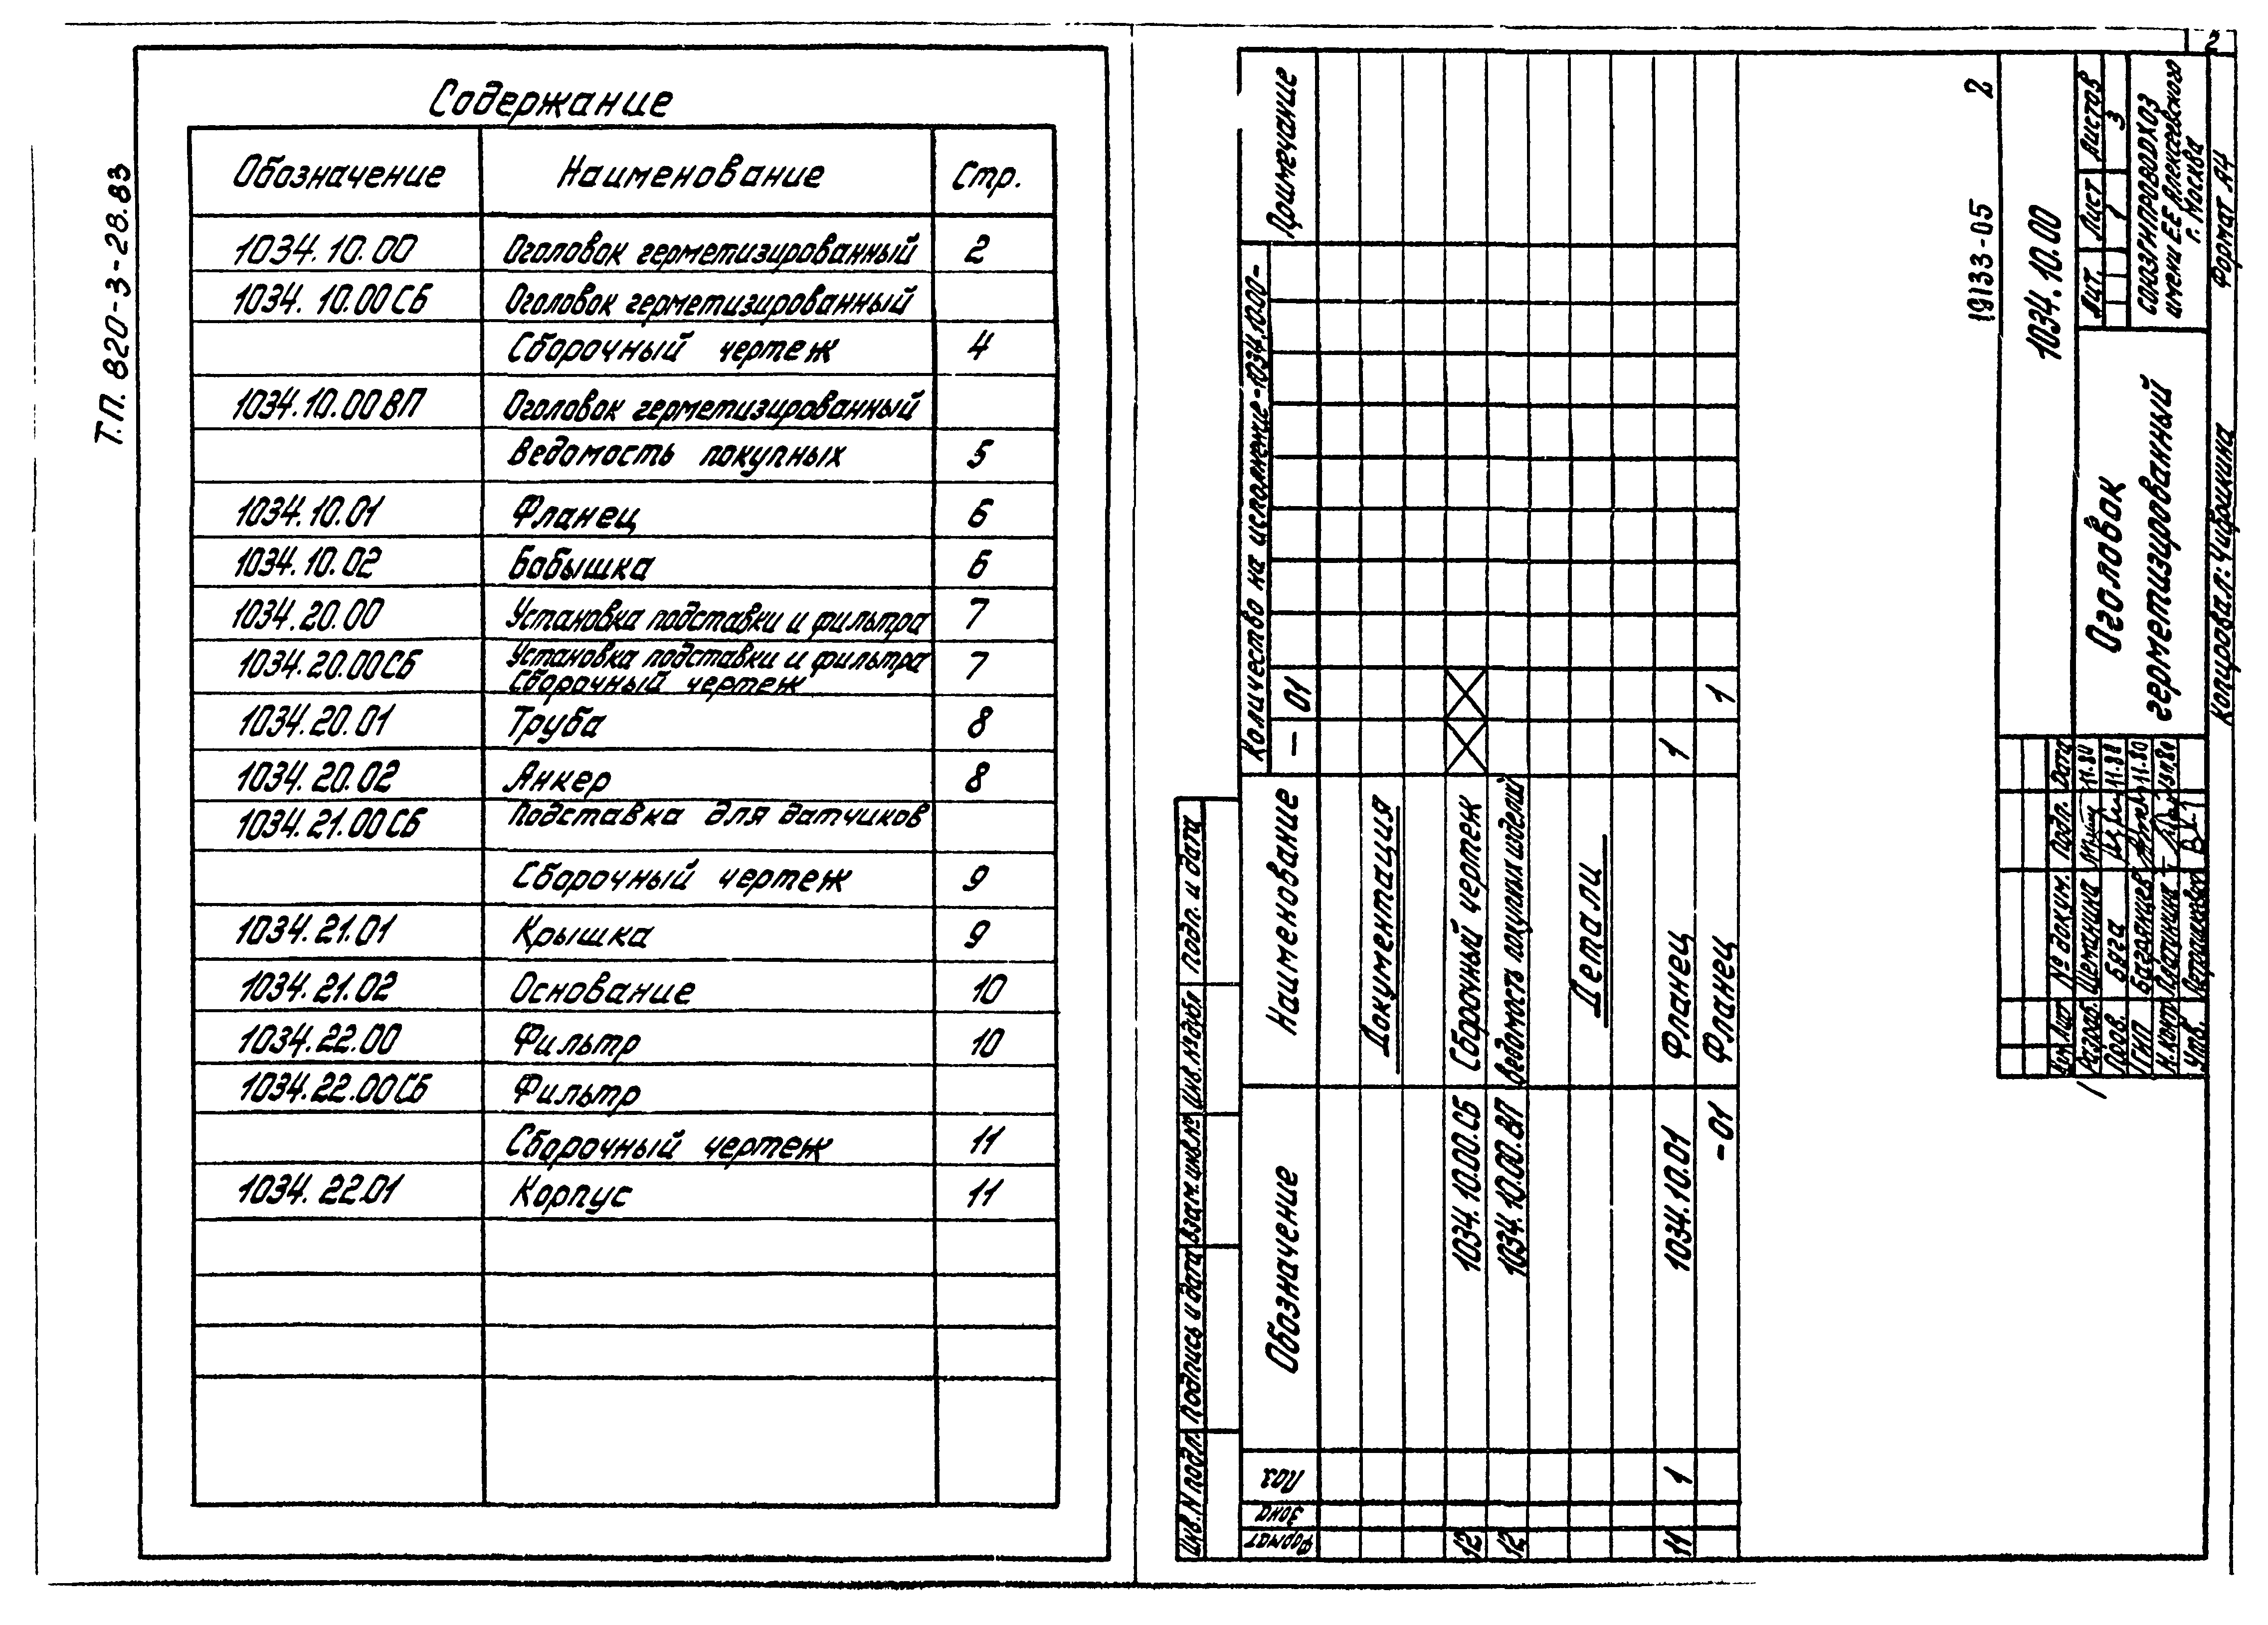 Т.П. 820-3-28.83
Содержание
Обозначение Наименование Стр.
1034.10.00 Оголовок герметизированный 2
1034.10.00СБ Оголовок герметизированный
Сборочный чертеж 4
1034.10.00ВП Оголовок герметизированный
Ведомость покупных 5
1034.10.01 Фланец 6
1034.10.02 Бобышка 6
1034.20.00 Установка подставки и фильтра 7
1034.20.00СБ Установка подставки и фильтра 7
Сборочный чертеж
1034.20.01 Труба 8
1034.20.02 Анкер 8
1034.21.00СБ Подставка для датчиков
Сборочный чертеж 9
1034.21.01 Крышка 9
1034.21.02 Основание 10
1034.22.00 Фильтр 10
1034.22.00СБ Фильтр
Сборочный чертеж 11
1034.22.01 Корпус 11
2
Инв.N подл. Подпись и дата Взам.инв.№ Инв.№дубл подп. и дата
Формат Зона Поз Обозначение Наименование Количество на исполнение-1034.10.00- Примечание
— 01
Документация
12 1034.10.00.СБ Сборочный чертеж
12 1034.10.00.ВП Ведомость покупных изделий
Детали
11 1 1034.10.01 Фланец 1
-01 Фланец 1
19133-05 2
1034.10.00
Изм Лист № докум. Подп. Дата
Разраб. Шеманина 11.80
Пров. Бяга 11.80
ГИП Багдянцев 11.80
Н.контр Платинина
Утв.
Оголовок
герметизированный
Лит. Лист Листов
1 3
СОЮЗГИПРОВОДХОЗ
имени Е.Е.Алексеевского
г. Москва
Копировал: Чиброшкина Формат А4